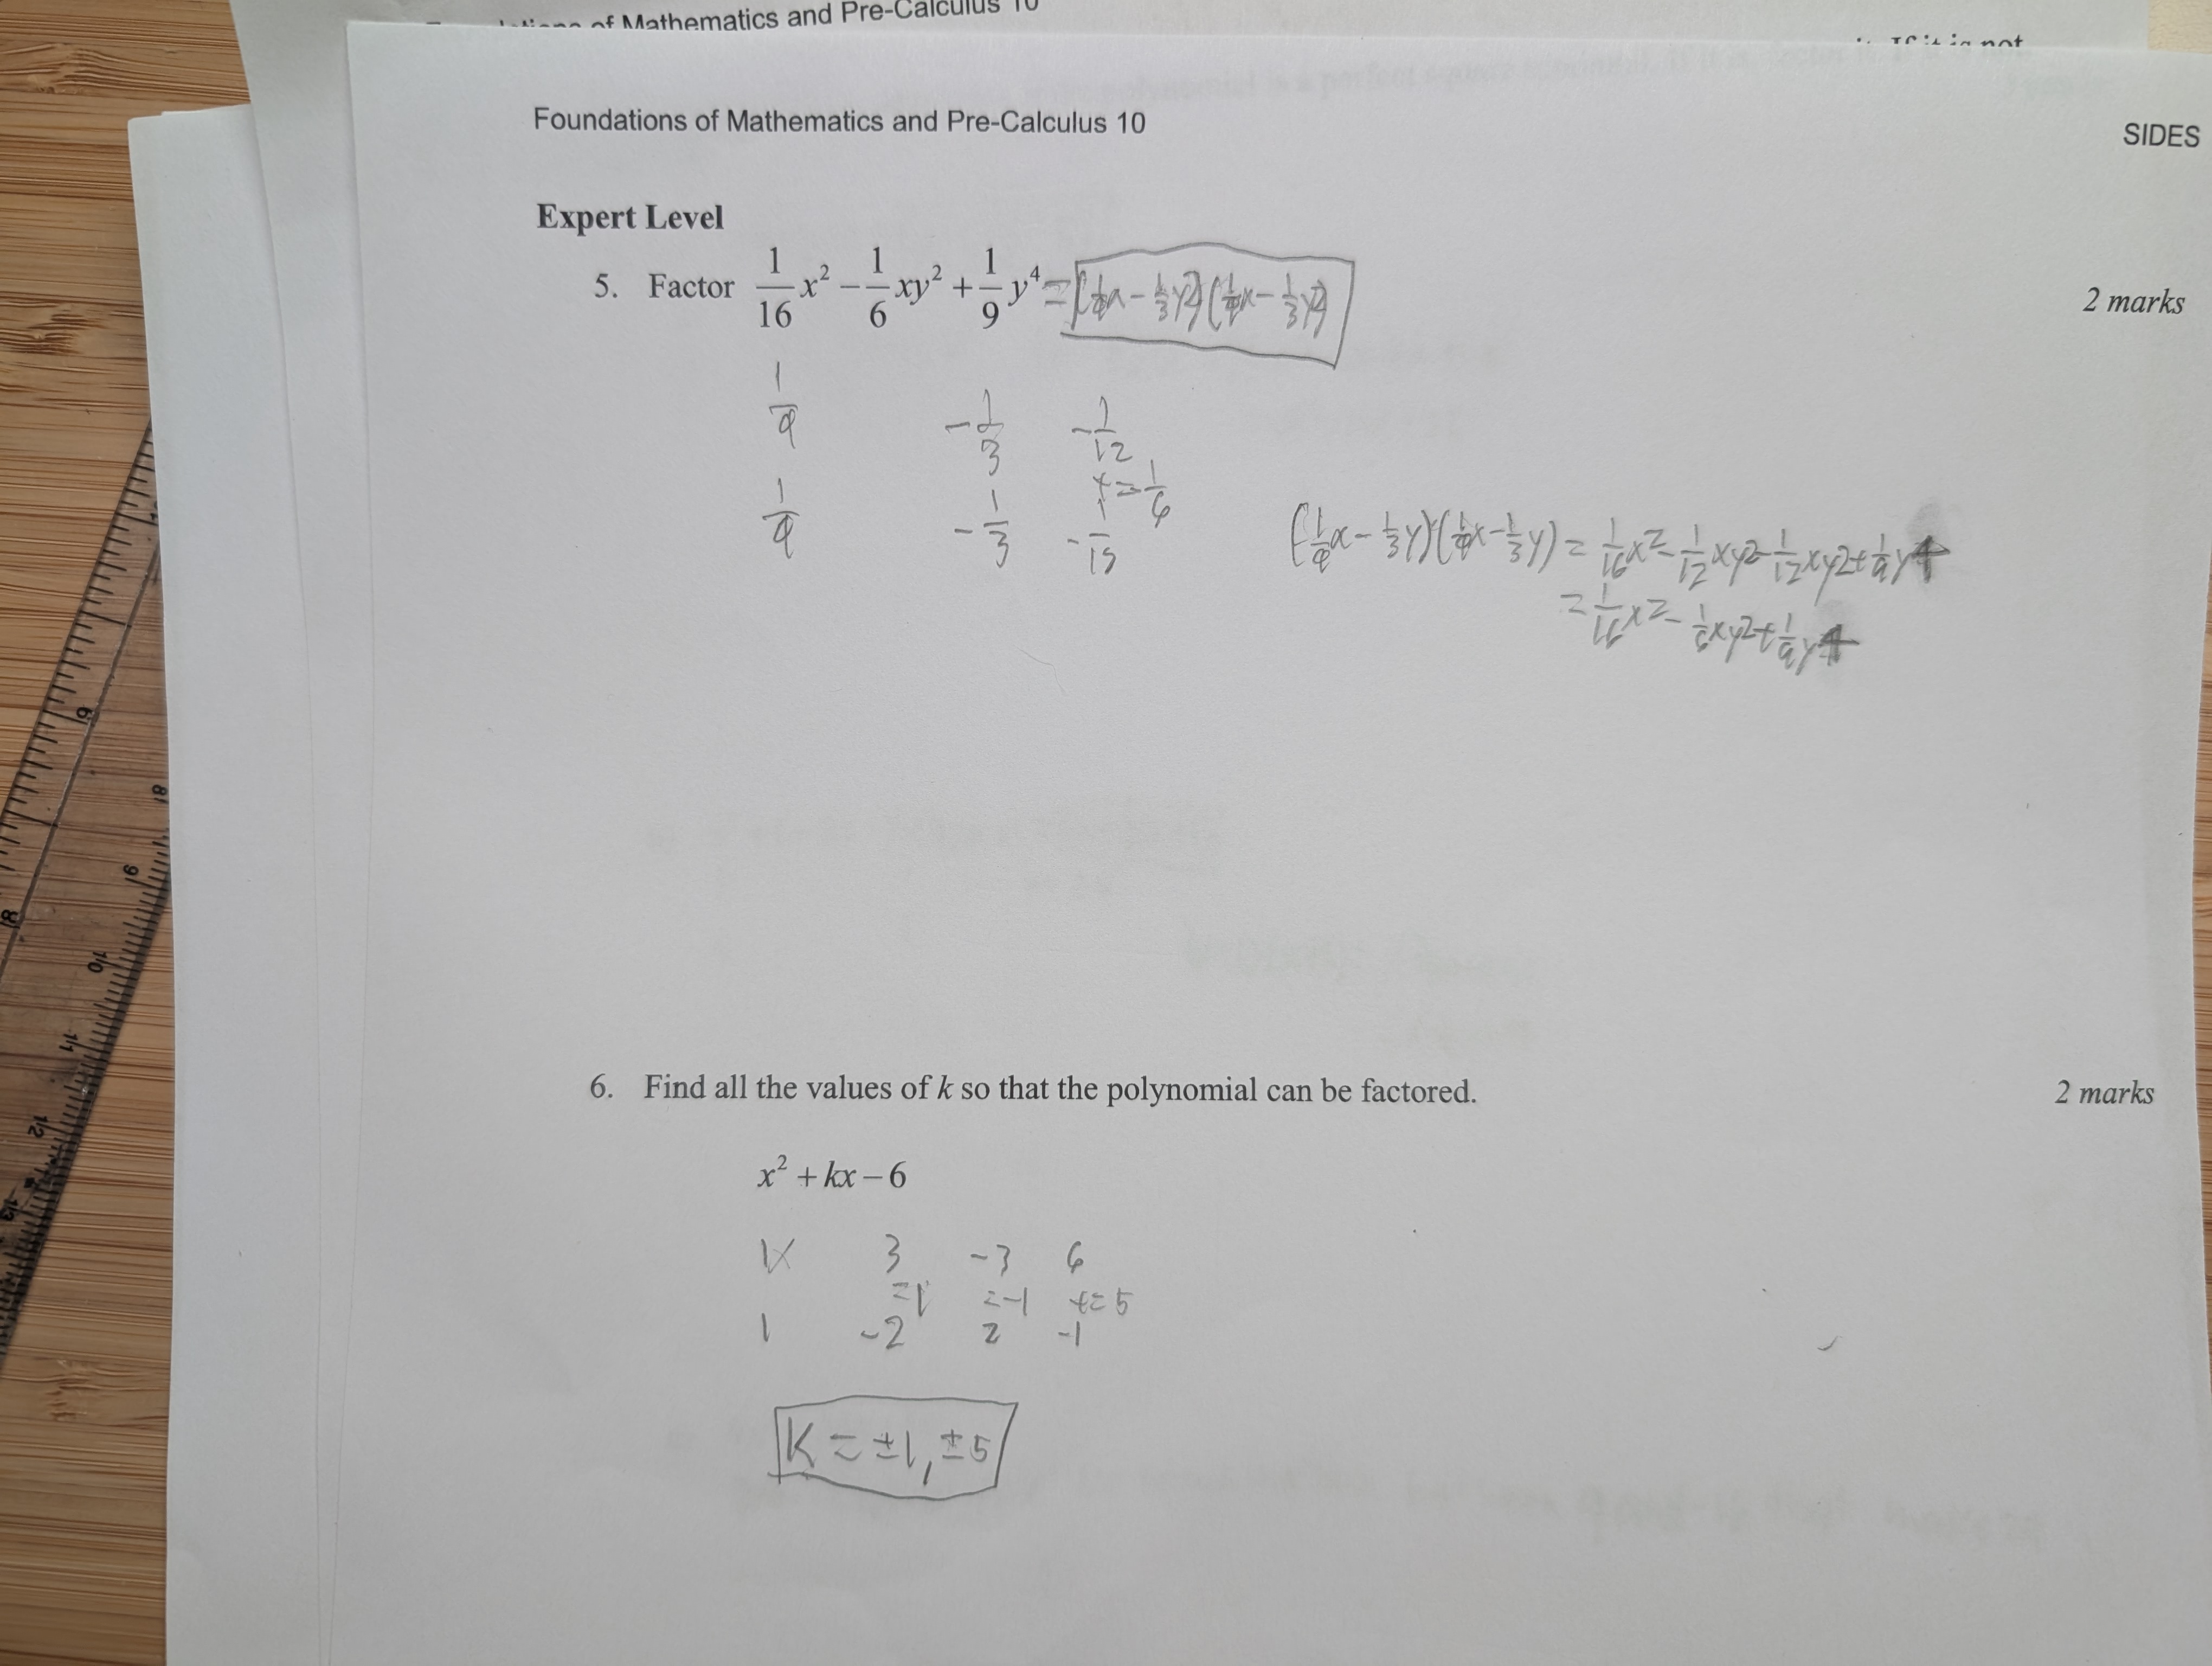 of Mathematics and Pre-Calculus 10
If it is not
Foundations of Mathematics and Pre-Calculus 10
SIDES
Expert Level
5. Factor 1/16 x² − 1/6 xy² + 1/9 y⁴ = (1/4x − 1/3y2)(1/4x − 1/3y2)
2 marks
1/4 −1/3 −1/12
+= 1/6
1/4 −1/3
(1/4x − 1/3y)(1/4x − 1/3y) = 1/16x2 − 1/12xy2 − 1/12xy2 + 1/9y4
= 1/16x2 − 1/6xy2 + 1/9y4
6. Find all the values of k so that the polynomial can be factored.
2 marks
x² + kx − 6
1 3 −3 6
=1 =−1 += 5
1 −2 2 −1
K = ±1, ±5
9
18
9
18
10
11
12
13